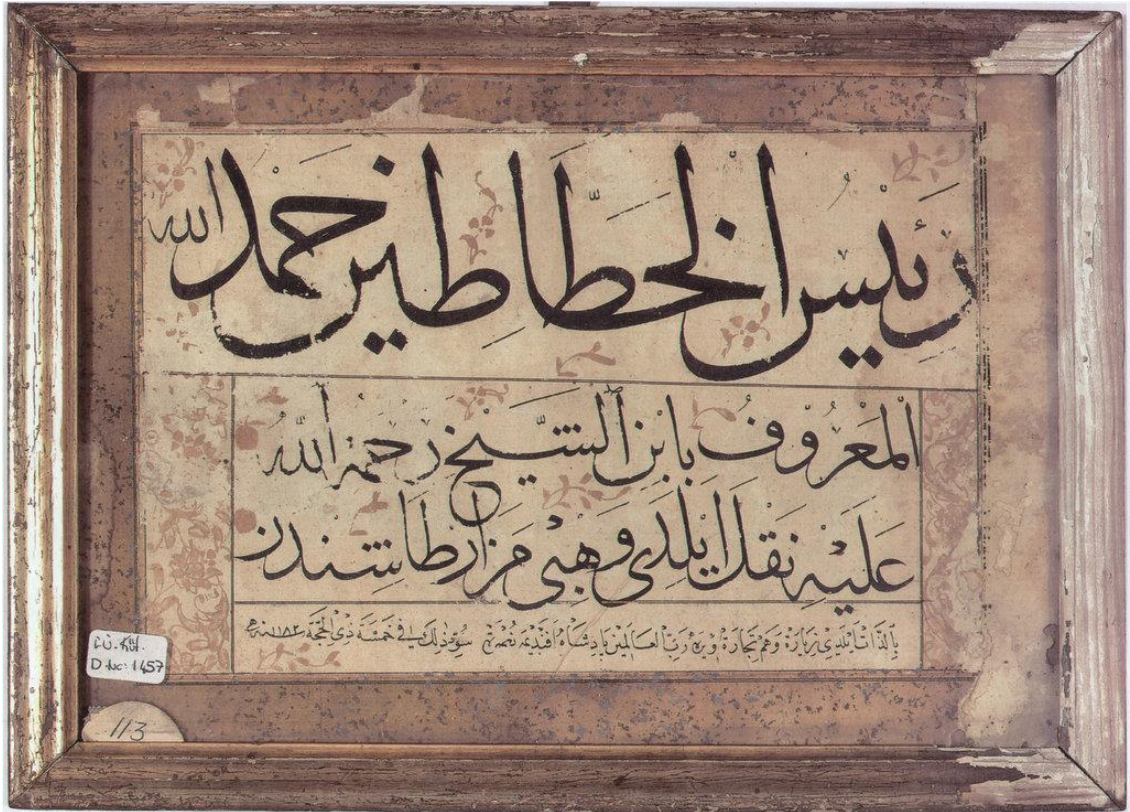 رئيس الخطاطين حمد الله
المعروف بابن الشيخ رحمة الله
عليه نقل ايلدى وهبى مزار طاشندن
بالذات ايلدى زيارة وهم تجارة ويره رب العالمين پادشاه افنديمه نصرتى سود ذلك فى خمسة ذى الحجة ١١٨٢
D. No: 1457
113